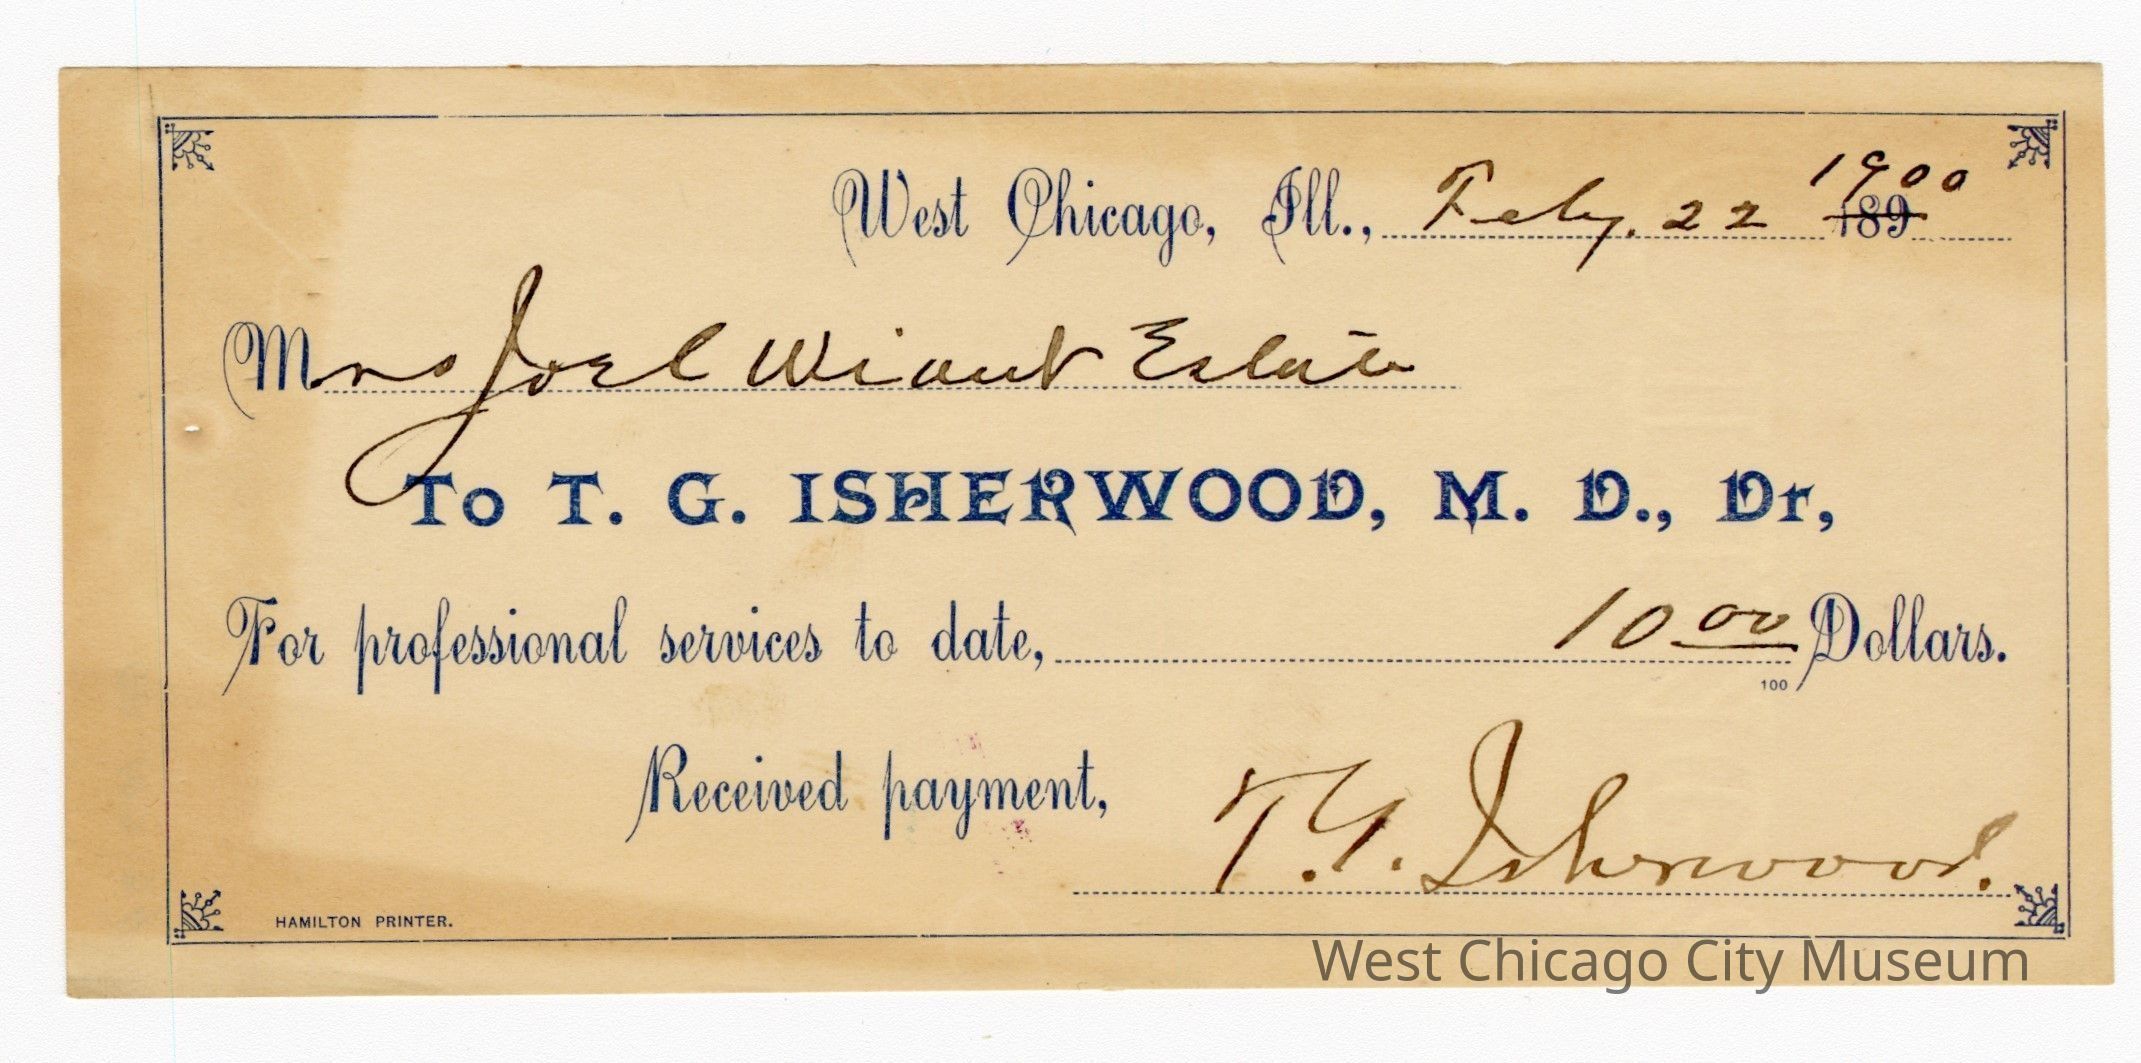 West Chicago, Ill., Feby. 22 1900 189
Mrs Joel Wiant Estate
To T. G. ISHERWOOD, M. D., Dr,
For professional services to date, 10 00/100 Dollars.
Received payment,
T. G. Isherwood.
HAMILTON PRINTER.
West Chicago City Museum